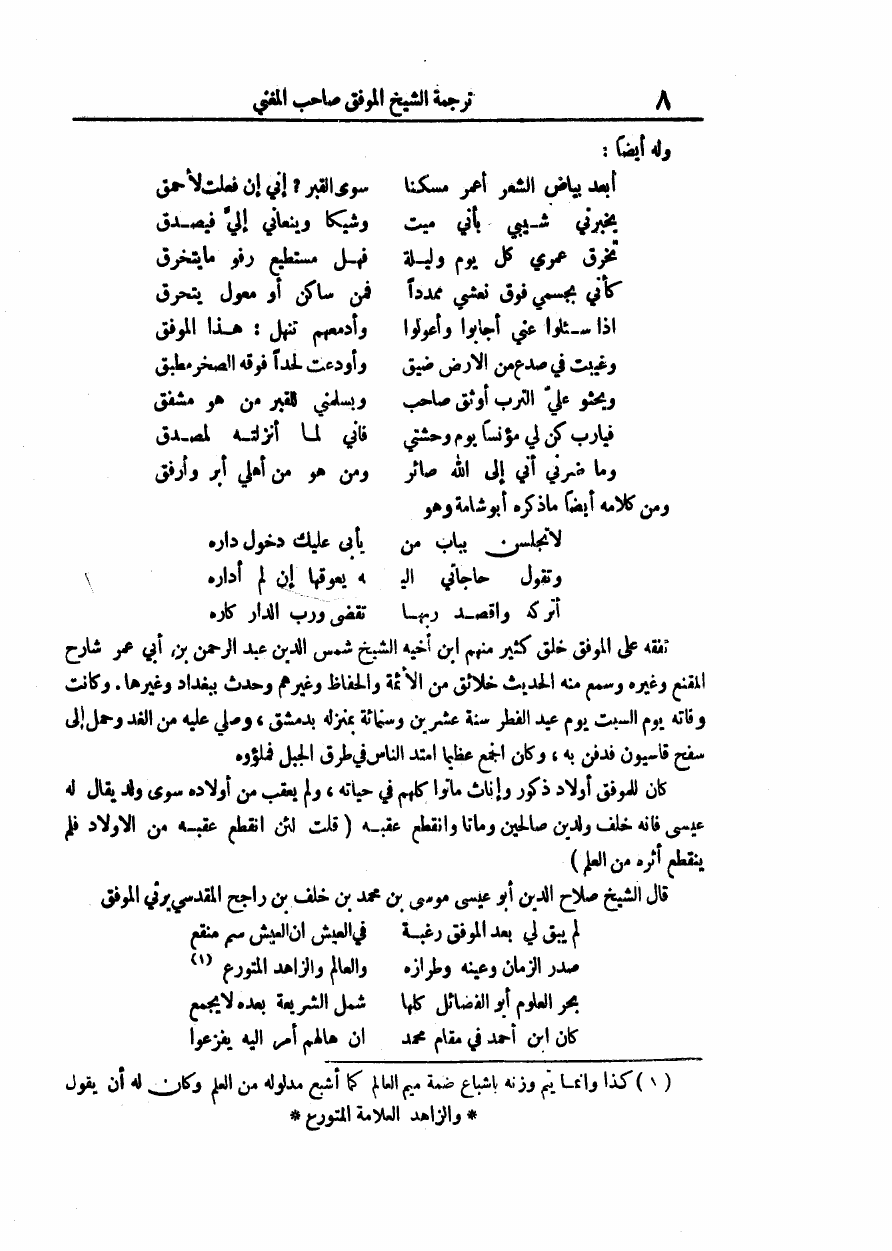 ٨ ترجمة الشيخ الموفق صاحب المغني
وله أيضاً :
أبعد بياض الشعر أعمر مسكنا سوى القبر ؟ إني إن فعلت لأحمق
يخبرني شيبي بأني ميت وشيكا وينعاني إليَّ فيصدق
تخرق عمري كل يوم وليلة فهل مستطيع رفو مايتخرق
كأني بجسمي فوق نعشي ممدداً فمن ساكن أو معول يتحرق
اذا سئلوا عني أجابوا وأعولوا وأدمعهم تنهل : هذا الموفق
وغيبت في صدع من الارض ضيق وأودعت لحداً فوقه الصخر مطبق
ويحثو عليَّ الترب أوثق صاحب ويسلمني للقبر من هو مشفق
فيارب كن لي مؤنساً يوم وحشتي فاني لما أنزلته لمصدق
وما ضرني أني إلى الله صائر ومن هو من أهلي أبر وأرفق
ومن كلامه أيضاً ماذكره أبو شامة وهو
لاتجلسن بباب من يأبى عليك دخول داره
وتقول حاجاتي اليـ ـه يعوقها إن لم أداره
أتركه واقصد ربها تقضى ورب الدار كاره
تفقه على الموفق خلق كثير منهم ابن أخيه الشيخ شمس الدين عبد الرحمن بن أبي عمر شارح
المقنع وغيره وسمع منه الحديث خلائق من الأئمة والحفاظ وغيرهم وحدث ببغداد وغيرها . وكانت
وفاته يوم السبت يوم عيد الفطر سنة عشرين وستمائة بمنزله بدمشق ، وصلي عليه من الغد وحمل إلى
سفح قاسيون فدفن به ، وكان الجمع عظيما امتد الناس في طرق الجبل فملؤوه
كان للموفق أولاد ذكور وإناث ماتوا كلهم في حياته ، ولم يعقب من أولاده سوى ولد يقال له
عيسى فانه خلف ولدين صالحين وماتا وانقطع عقبه ( قلت لئن انقطع عقبه من الاولاد فلم
ينقطع أثره من العلم )
قال الشيخ صلاح الدين أبو عيسى موسى بن محمد بن خلف بن راجح المقدسي يرثي الموفق
لم يبق لي بعد الموفق رغبة في العيش ان العيش سم منقع
صدر الزمان وعينه وطرازه والعالم والزاهد المتورع (١)
بحر العلوم أبو الفضائل كلها شمل الشريعة بعده لايجمع
كان ابن أحمد في مقام محمد ان هالهم أمر اليه يفزعوا
(١) كذا وانما يتم وزنه باشباع ضمة ميم العالم كما أشبع مدلوله من العلم وكان له أن يقول
* والزاهد العلامة المتورع *